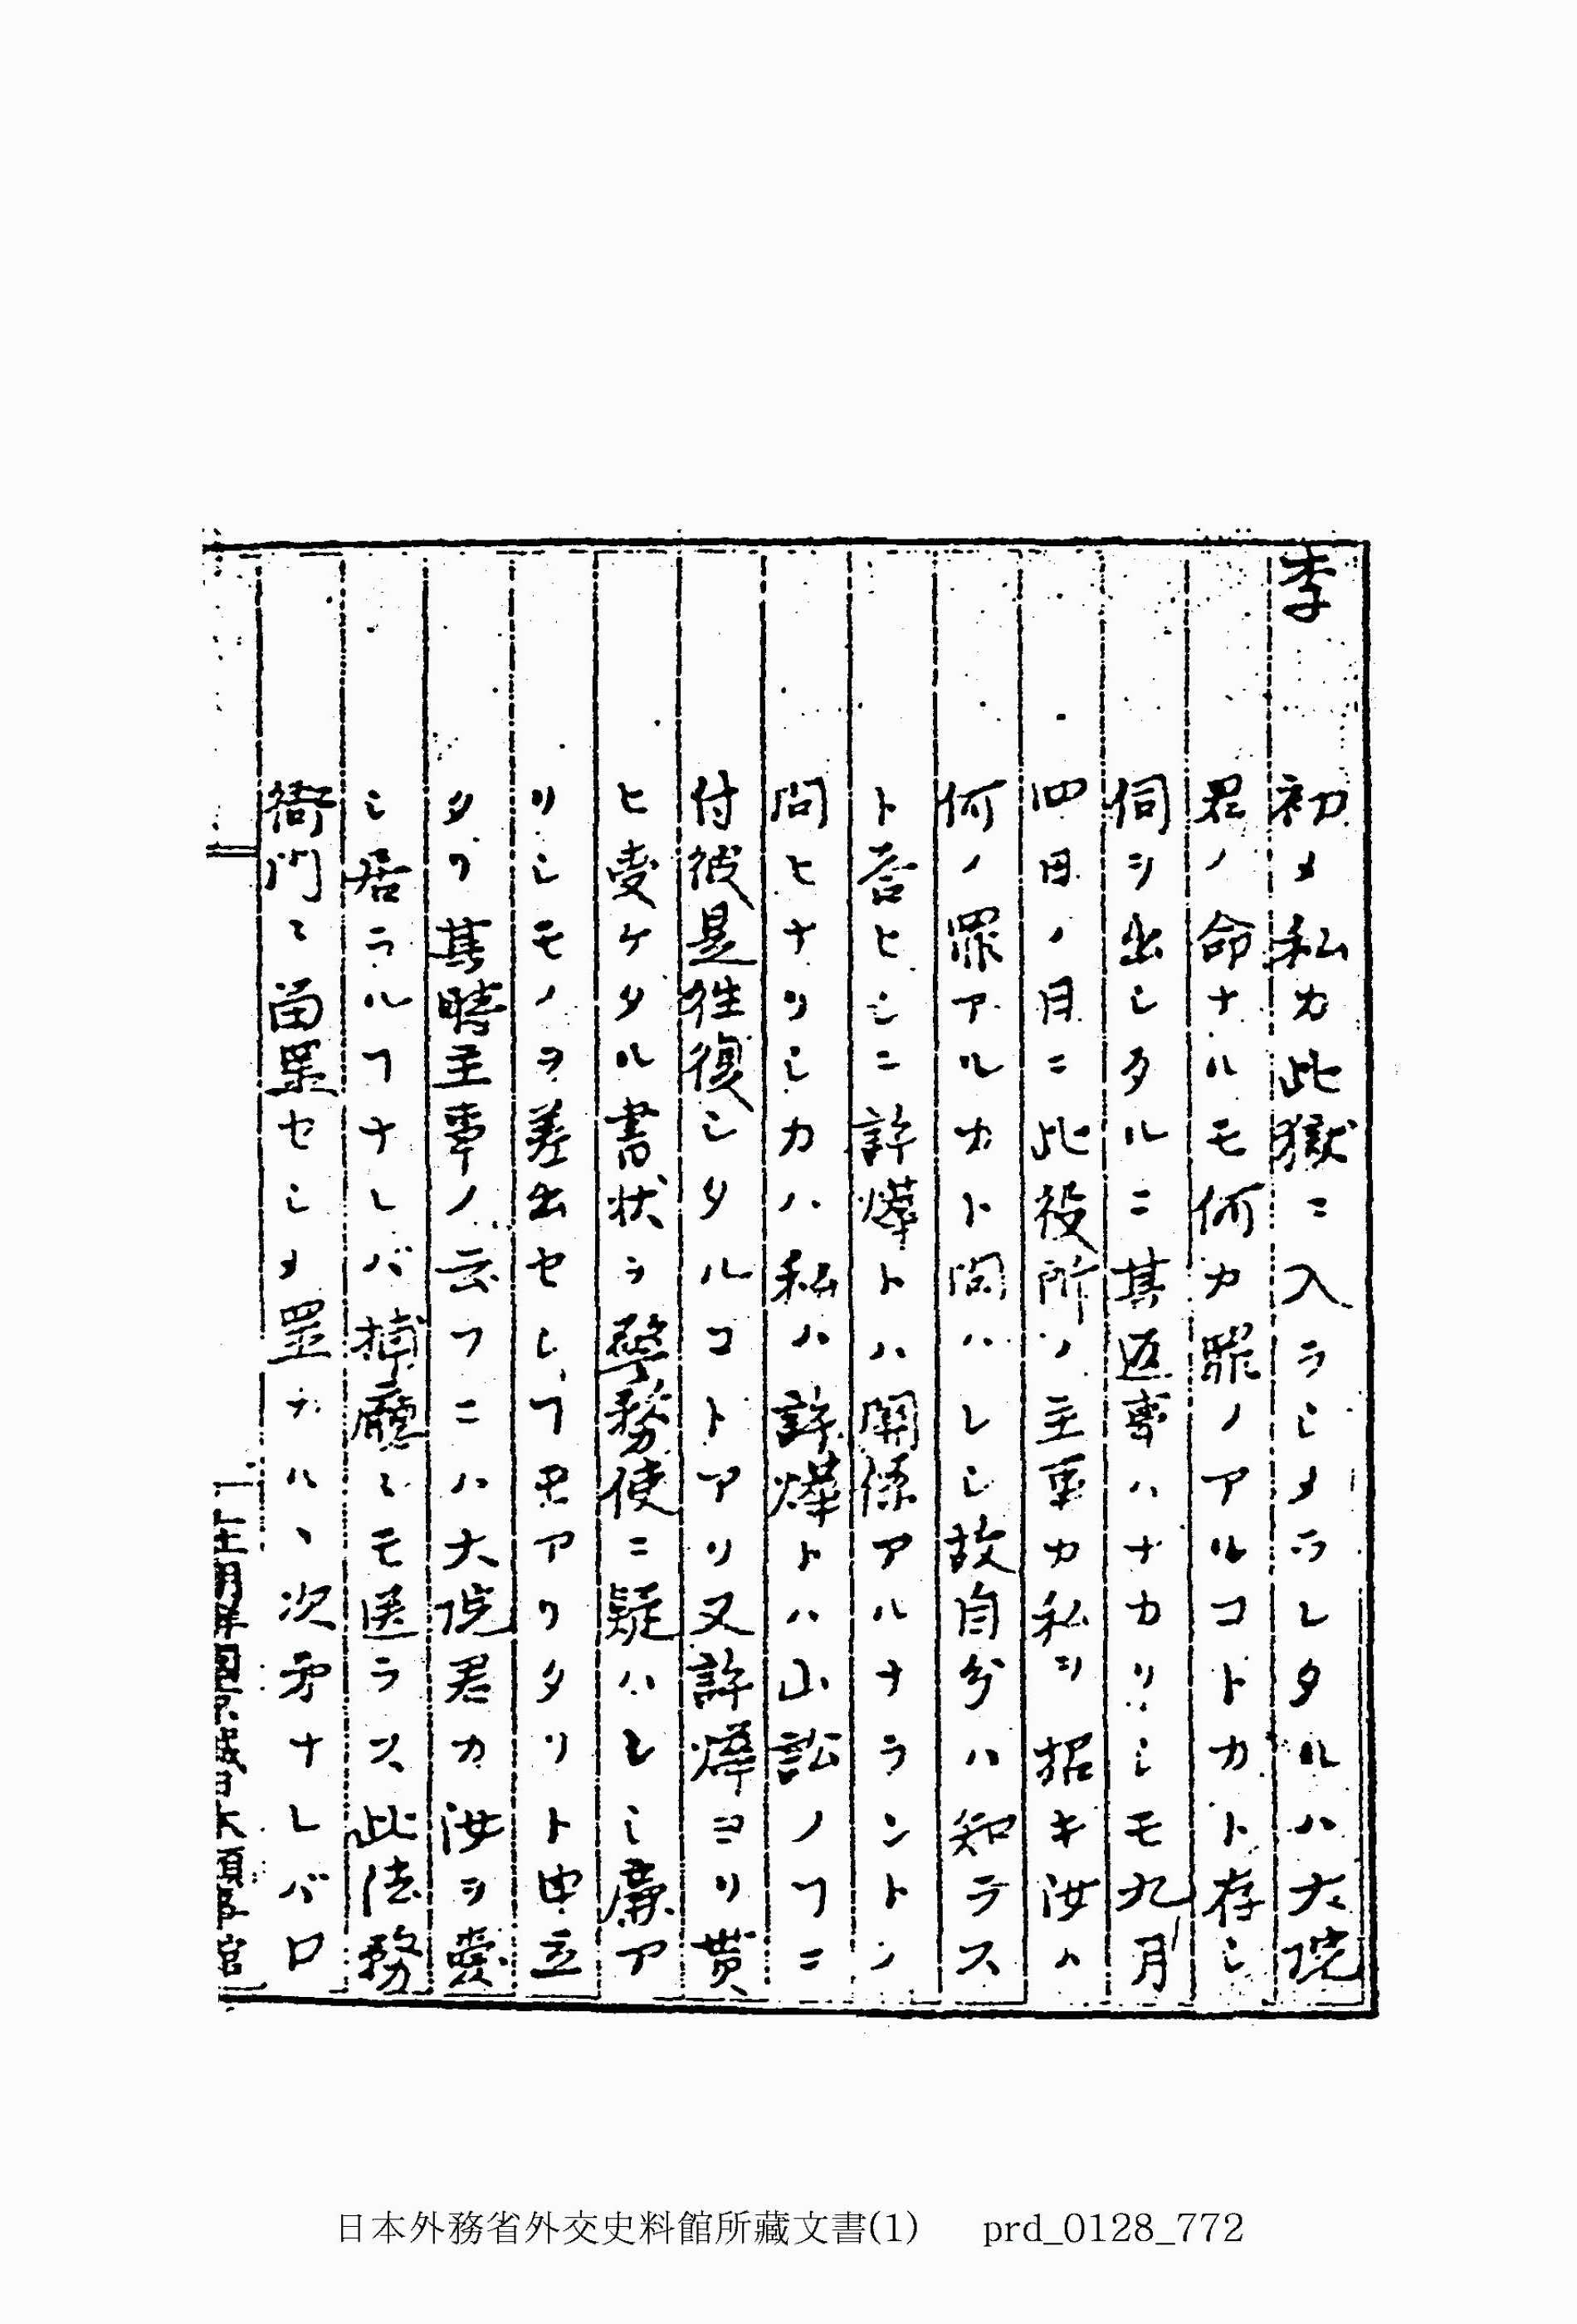 李　初メ私カ此獄ニ入ラシメラレタルハ大院
君ノ命ナルモ何カ罪ノアルコトカト存シ
伺ヲ出シタルニ其返事ハナカリシモ九月
四日ノ目ニ此役所ノ主事カ私ヲ招キ汝ハ
何ノ罪アルカト問ハレシ故自分ハ知ラス
ト答ヒシニ許燁トハ関係アルナラントノ
問ヒナリシカハ私ハ許燁トハ山訟ノヿニ
付彼是往復シタルコトアリ又許燁ヨリ貰
ヒ受ケタル書状ヲ警務使ニ疑ハレシ廉ア
リシモノヲ差出セシヿモアリタリト申立
タリ其時主事ノ云フニハ大院君カ汝ヲ愛
シ居ラルヿナレバ捕廳ニモ送ラス此法務
衙門ニ留置セシメ置カル、次第ナレバ口
在朝鮮国京城日本領事館
日本外務省外交史料館所藏文書(1)　prd_0128_772